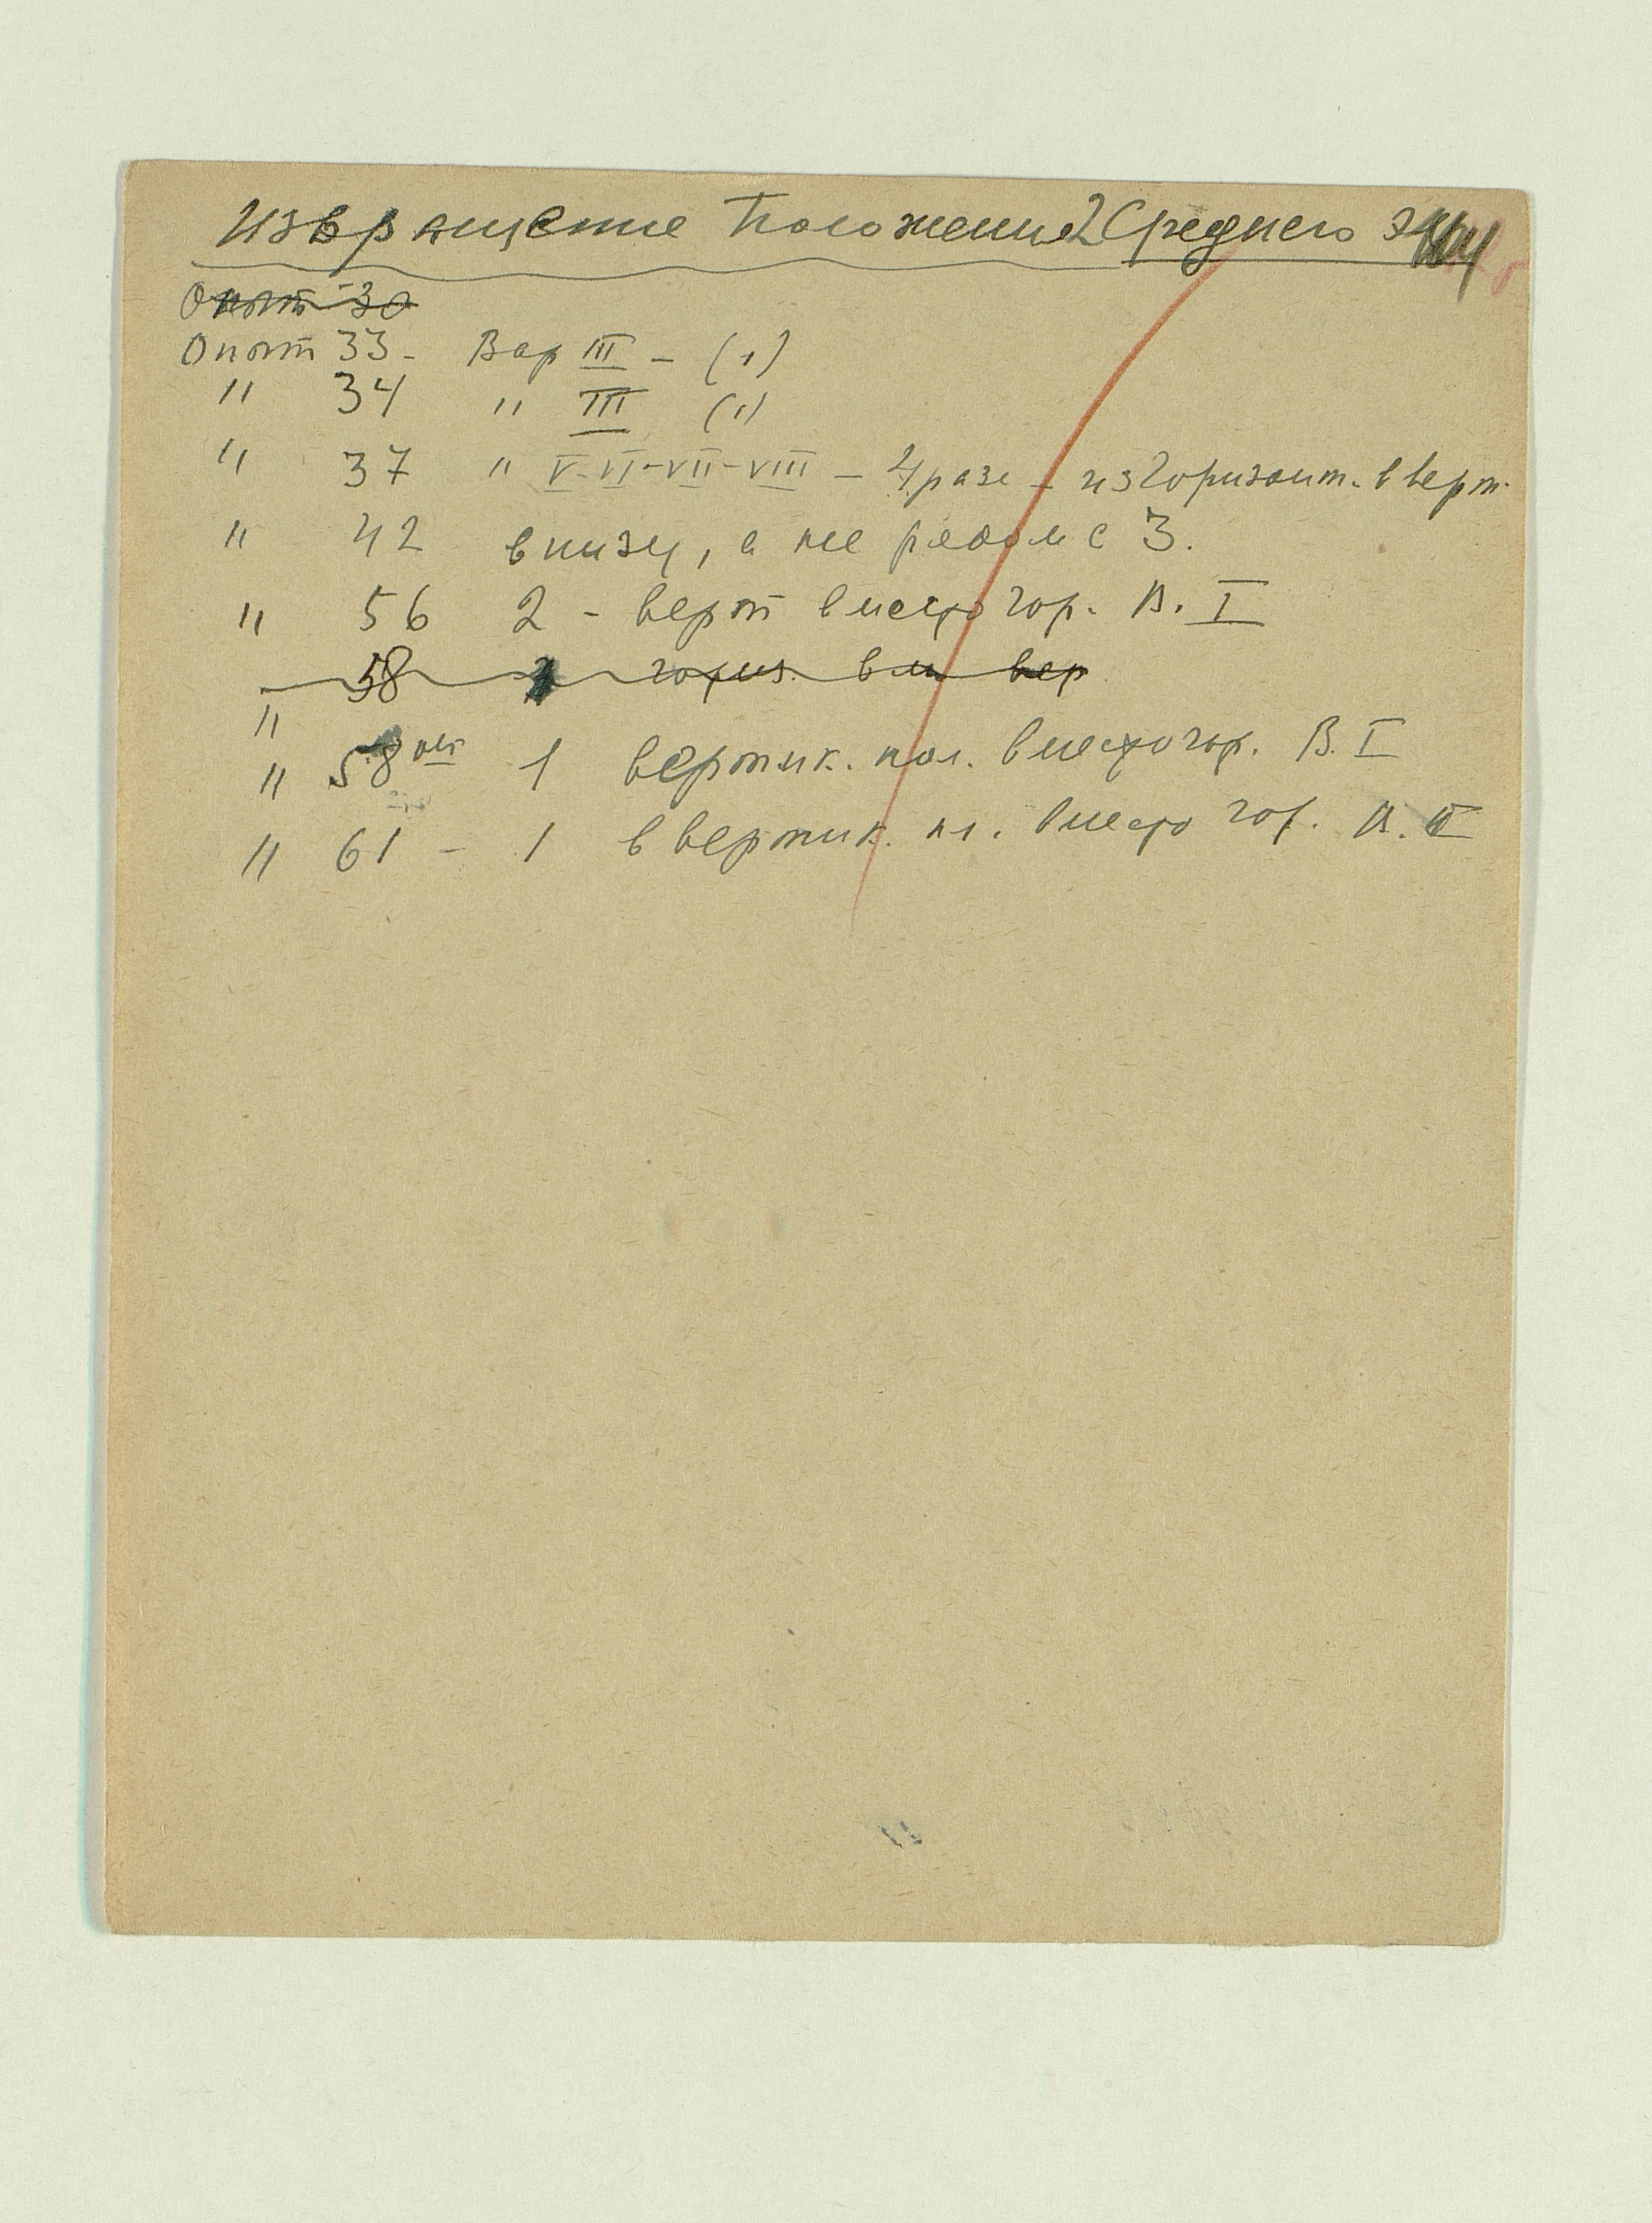 Извращение Положения 2 Среднего
Опыт 30
Опыт 33 - Вар III - (1)
" 34 " III (1)
" 37 " V-VI-VII-VIII - 4 раза - из горизонт. в верт.
" 42 внизу, а не рядом с 3.
" 56 2 - верт вместо гор. В. I
58 гориз. вм вер
"
" 58 1 вертик. пол. вместо гор. В. I
" 61 - 1 в вертик. пл. вместо гор. В. II